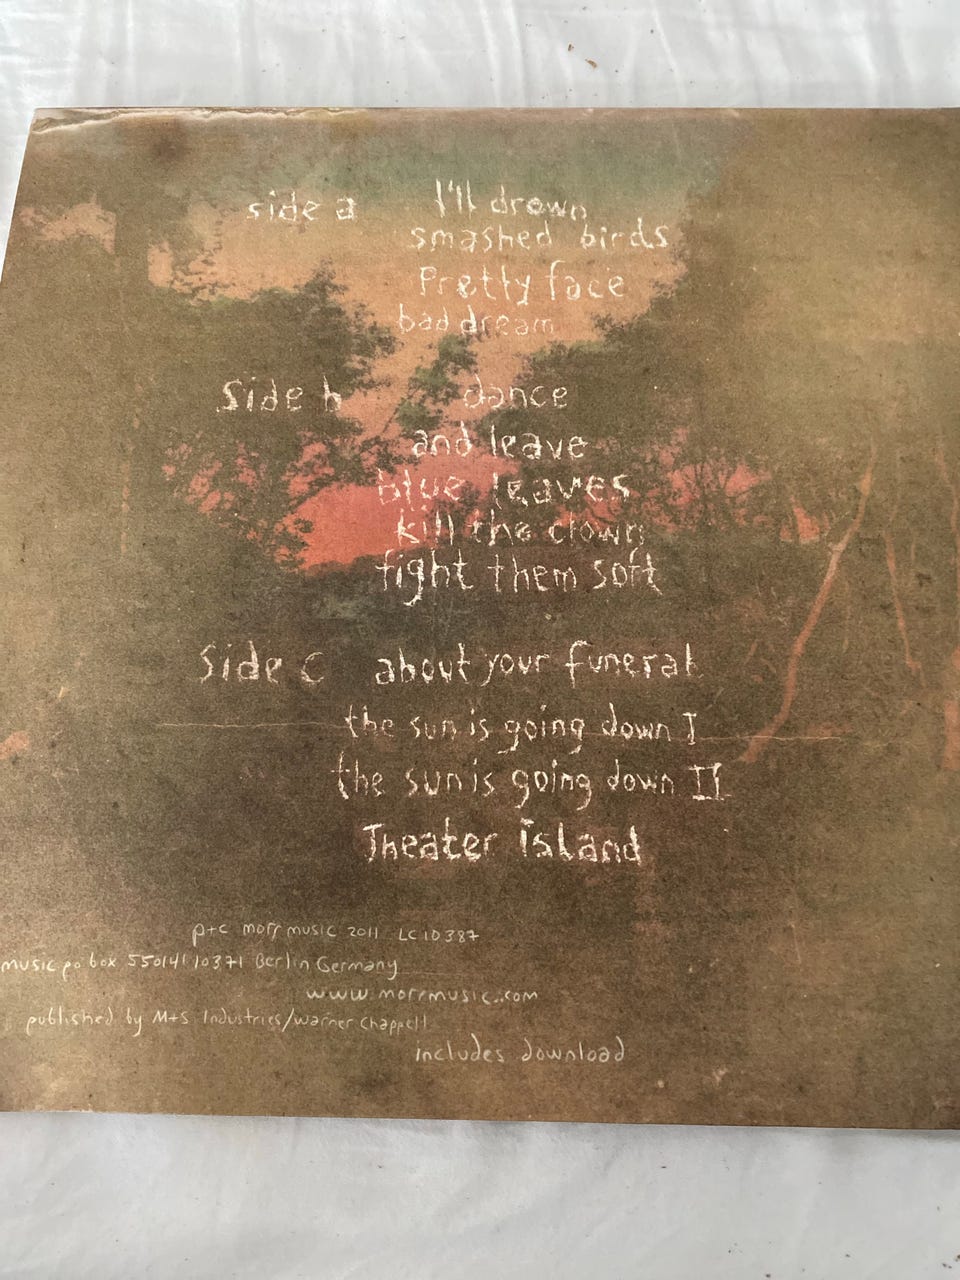 side a I'll drown
smashed birds
Pretty face
bad dream
Side b dance
and leave
blue leaves
kill the clown
fight them soft
Side c about your funeral
the sun is going down I
the sun is going down II
Theater island
p+c morr music 2011 LC10387
music po box 550141 10371 Berlin Germany
www.morrmusic.com
published by M+S Industries/warner chappell
includes download